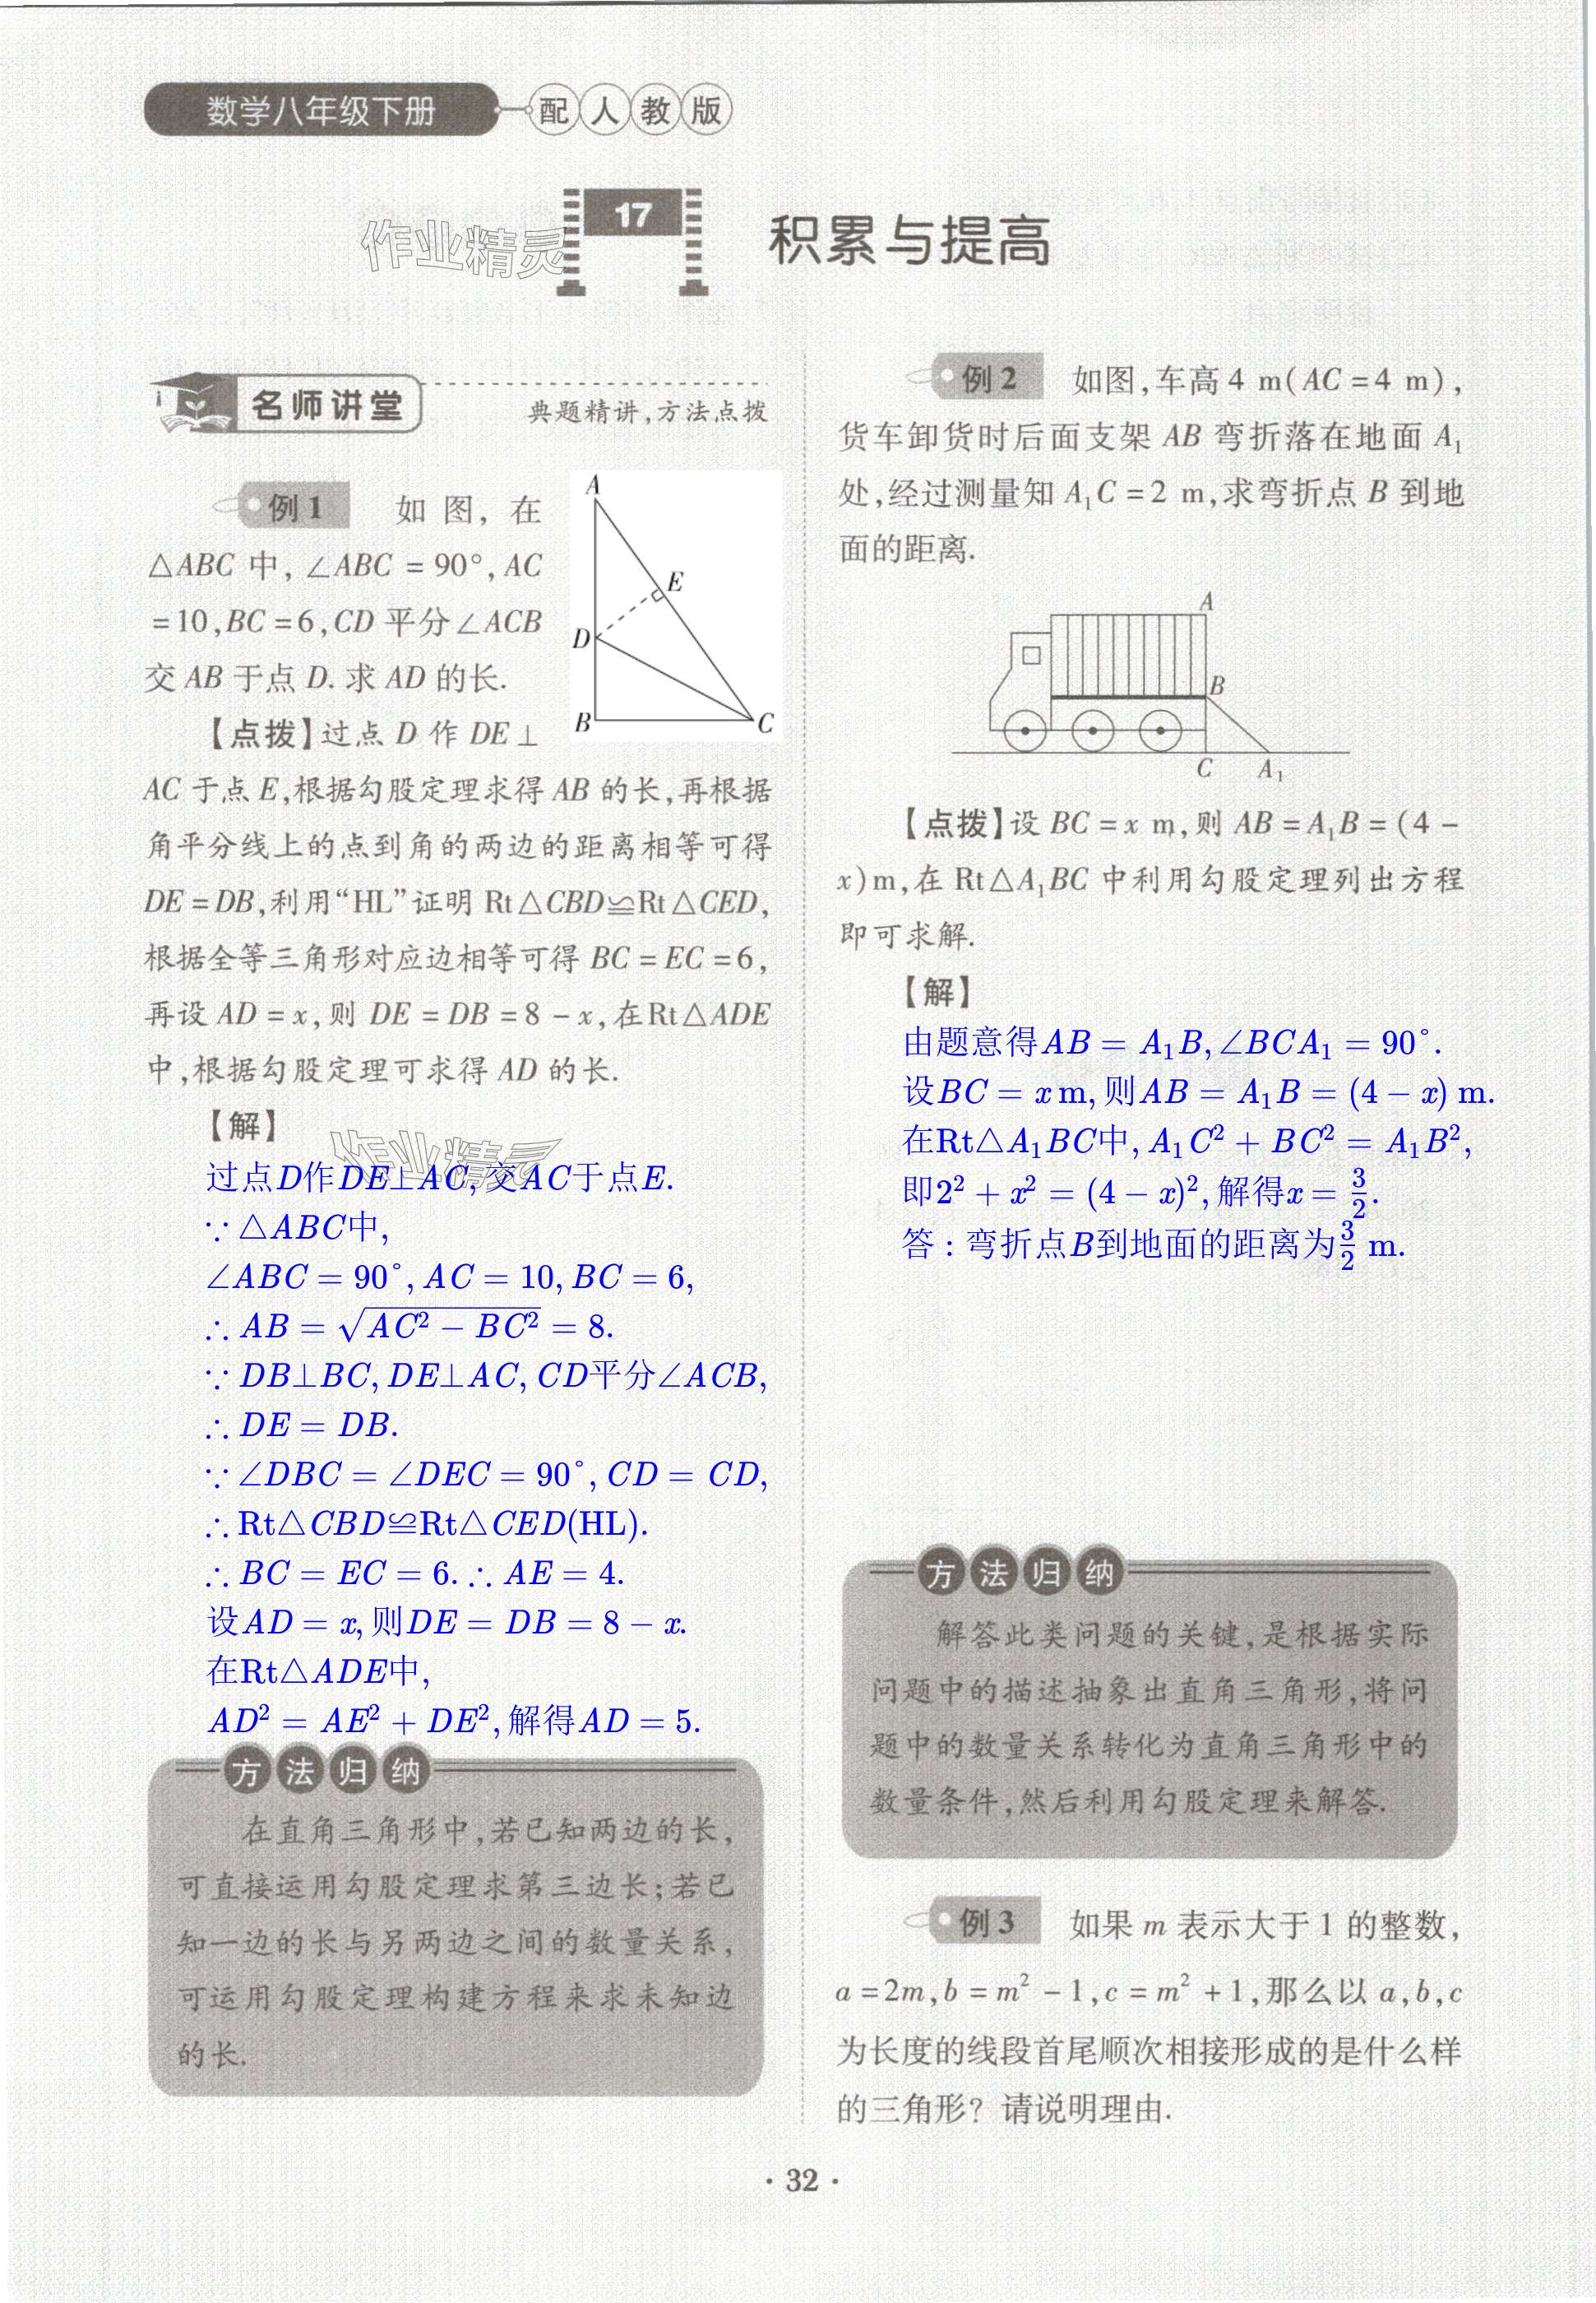 数学八年级下册 配人教版
17 积累与提高
作业精灵
名师讲堂 典题精讲,方法点拨
例1 如图,在
△ABC 中,∠ABC = 90°,AC
=10,BC=6,CD 平分∠ACB
交 AB 于点 D. 求 AD 的长.
A
E
D
B
C
【点拨】过点 D 作 DE⊥
AC 于点 E,根据勾股定理求得 AB 的长,再根据
角平分线上的点到角的两边的距离相等可得
DE=DB,利用“HL”证明 Rt△CBD≌Rt△CED,
根据全等三角形对应边相等可得 BC=EC=6,
再设 AD=x,则 DE=DB=8-x,在Rt△ADE
中,根据勾股定理可求得 AD 的长.
【解】
作业精灵
过点D作DE⊥AC,交AC于点E.
∵△ABC中,
∠ABC=90°,AC=10,BC=6,
∴AB=√(AC²-BC²)=8.
∵DB⊥BC,DE⊥AC,CD平分∠ACB,
∴DE=DB.
∵∠DBC=∠DEC=90°,CD=CD,
∴Rt△CBD≌Rt△CED(HL).
∴BC=EC=6.∴AE=4.
设AD=x,则DE=DB=8-x.
在Rt△ADE中,
AD²=AE²+DE²,解得AD=5.
方法归纳
在直角三角形中,若已知两边的长,
可直接运用勾股定理求第三边长;若已
知一边的长与另两边之间的数量关系,
可运用勾股定理构建方程来求未知边
的长.
例2 如图,车高4 m(AC=4 m),
货车卸货时后面支架 AB 弯折落在地面 A₁
处,经过测量知 A₁C=2 m,求弯折点 B 到地
面的距离.
A
B
C A₁
【点拨】设 BC=x m,则 AB=A₁B=(4-
x)m,在 Rt△A₁BC 中利用勾股定理列出方程
即可求解.
【解】
由题意得AB=A₁B,∠BCA₁=90°.
设BC=x m,则AB=A₁B=(4-x) m.
在Rt△A₁BC中,A₁C²+BC²=A₁B²,
即2²+x²=(4-x)²,解得x=3/2.
答:弯折点B到地面的距离为3/2 m.
方法归纳
解答此类问题的关键,是根据实际
问题中的描述抽象出直角三角形,将问
题中的数量关系转化为直角三角形中的
数量条件,然后利用勾股定理来解答.
例3 如果 m 表示大于 1 的整数,
a=2m,b=m²-1,c=m²+1,那么以 a,b,c
为长度的线段首尾顺次相接形成的是什么样
的三角形? 请说明理由.
· 32 ·